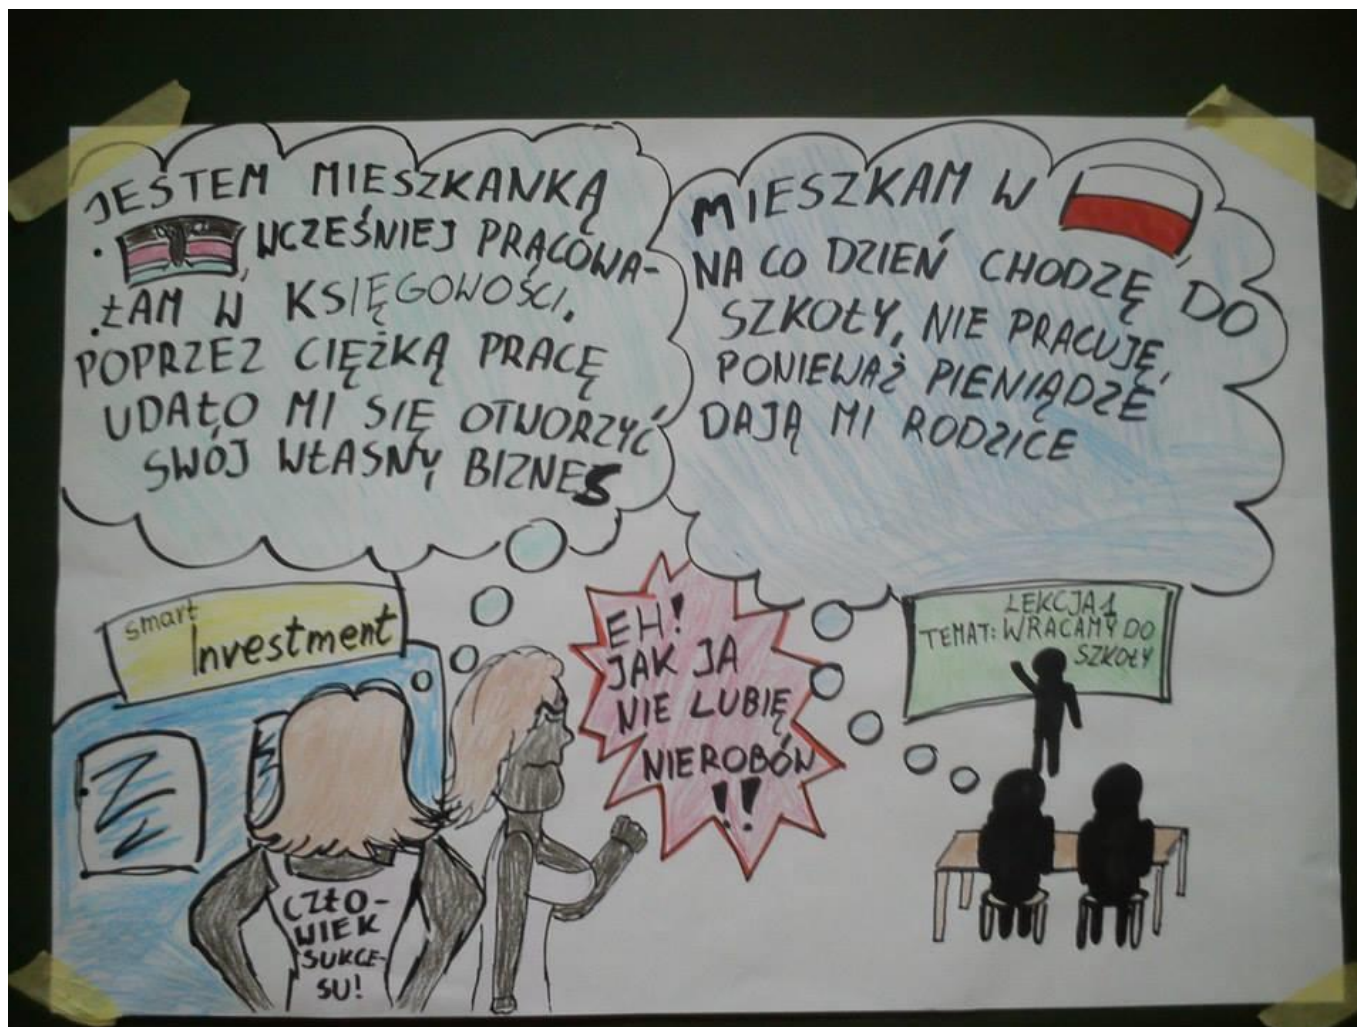 JESTEM MIESZKANKĄ
, WCZEŚNIEJ PRACOWA-
ŁAM W KSIĘGOWOŚCI,
POPRZEZ CIĘŻKĄ PRACĘ
UDAŁO MI SIĘ OTWORZYĆ
SWÓJ WŁASNY BIZNES
MIESZKAM W
NA CO DZIEŃ CHODZĘ DO
SZKOŁY, NIE PRACUJĘ,
PONIEWAŻ PIENIĄDZE
DAJĄ MI RODZICE
smart
Investment
EH!
JAK JA
NIE LUBIĘ
NIEROBÓW
!!
LEKCJA 1
TEMAT: WRACAMY DO
SZKOŁY
CZŁO-
WIEK
SUKCE-
SU!